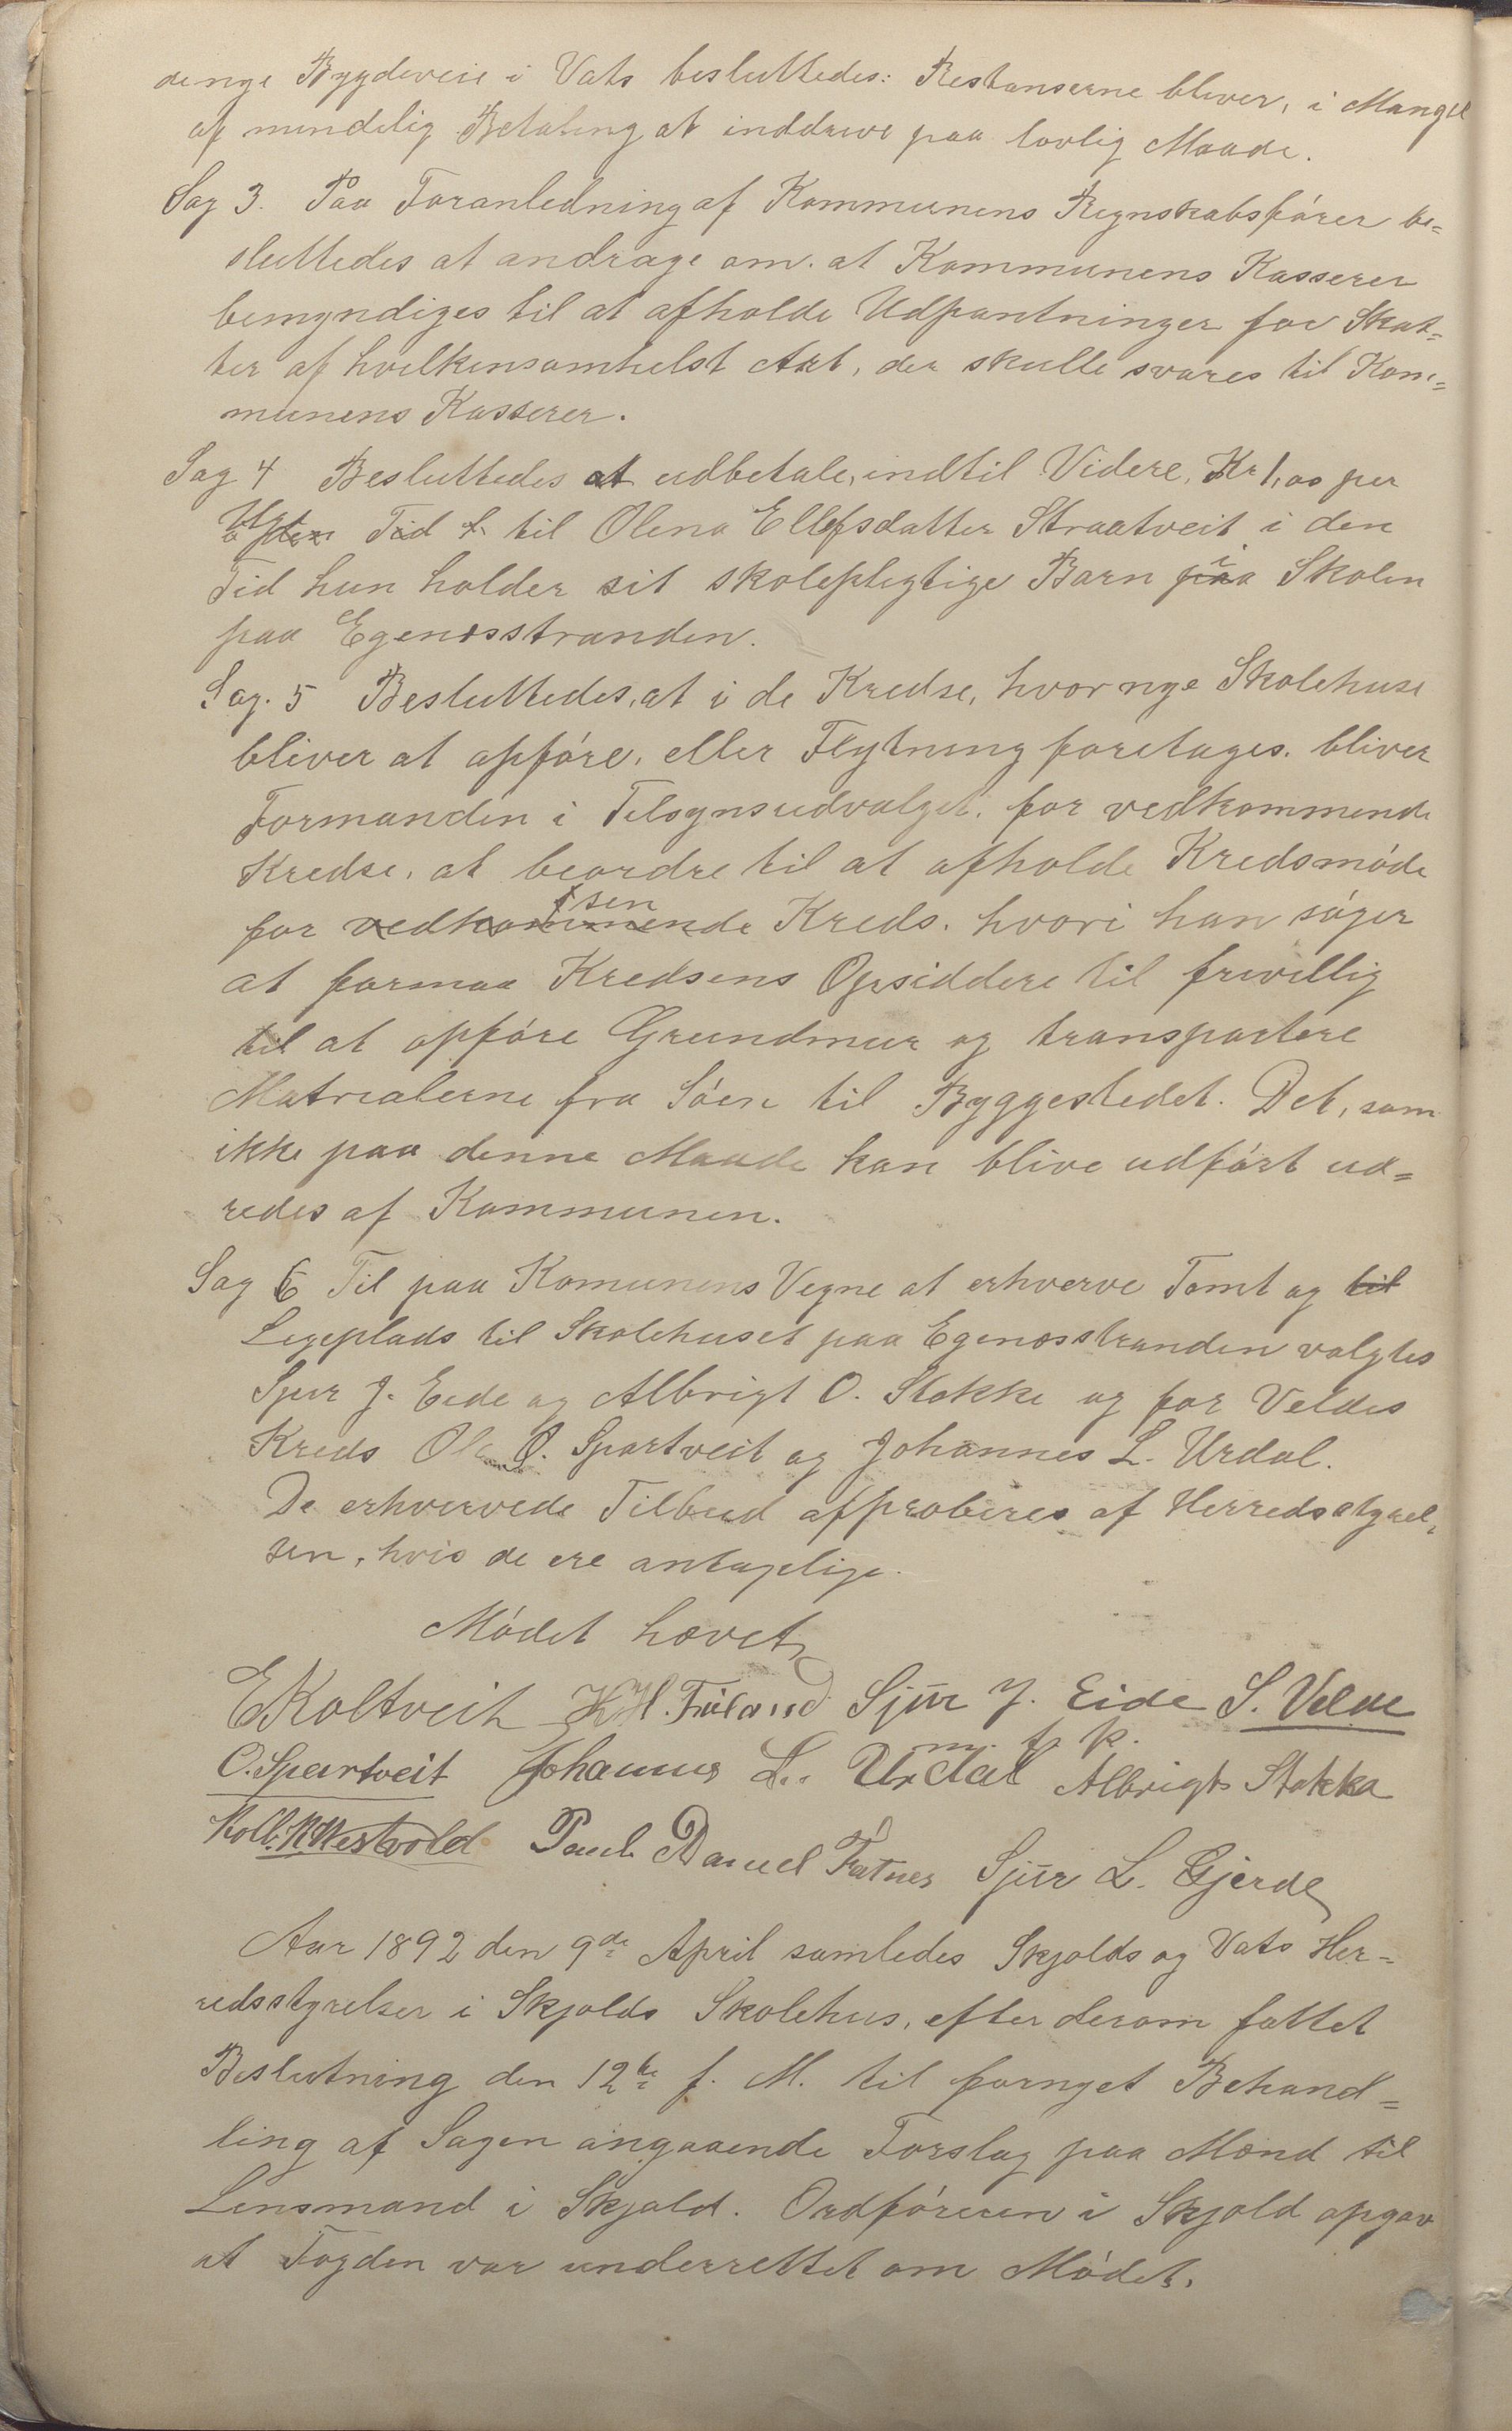 de nye Bygdeveie i Vats besluttedes: Restanserne bliver, i Mangel
af mindelig Betaling at inddrive paa lovlig Maade.
Sag 3. Paa Foranledning af Kommunens Regnskabsfører be=
sluttedes at andrage om. at Kommunens Kasserer
bemyndiges til at afholde Udpantninger for Skat=
ter af hvilkensomhelst Art, der skulle svares til Kom=
munens Kasserer.
Sag 4 Besluttedes at udbetale, indtil Videre, Kr 1,00 per
Uge Tid til Olena Ellefsdatter Straatveit i den
Tid hun holder sit skolepligtige Barn paa i Skolen
paa Egenæsstranden.
Sag. 5 Besluttedes, at i de Kredse, hvor nye Skolehuse
bliver at opføre, eller Flytning foretages. bliver
Formanden i Tilsynsudvalget, for vedkommende
Kredse, at beordre til at afholde Kredsmøde
for vedkommende sin Kreds. hvori han søger
at formaa Kredsens Opsiddere til frivillig
til at opføre Grundmur og transportere
Matrialerne fra Søen til Byggestedet. Det, som
ikke paa denne Maade kan blive udført ud=
redes af Kommunen.
Sag 6 Til paa Komunens Vegne at erhverve Tomt og til
Legeplads til Skolehuset paa Egenæsstranden valgtes
Sjur J. Eide og Albrigt O. Stokke og for Veldes
Kreds Ole O. Spartveit og Johannes L. Urdal.
De erhvervede Tilbud approberes af Herredsstyrel=
sen, hvis de ere antagelige.
Mødet hævet
E Koltveit K H. Frøland Sjur J. Eide S. Velde
m. f. P.
O. Spartveit Johannes L. Urdal Albrigt Stokka
Kolb. K Westvold Poul Daniel Fatnes Sjur L. Gjerde
Aar 1892 den 9de April samledes Skjolds og Vats Her=
redsstyrelser i Skjolds Skolehus, efter derom fattet
Beslutning den 12te f. M. til fornyet Behand=
ling af Sagen angaaende Forslag paa Mænd til
Lensmand i Skjold. Ordføreren i Skjold opgav
at Fogden var underrettet om Mødet.